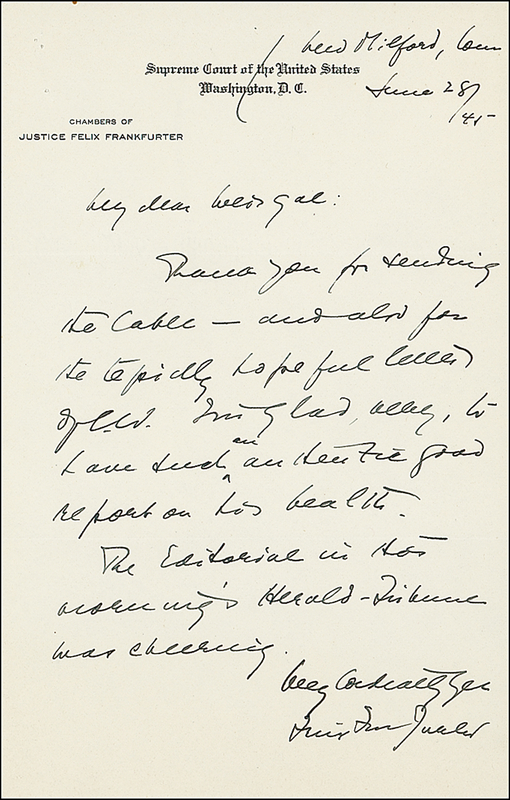 New Milford, Conn
Supreme Court of the United States
Washington, D. C.
June 28/
/45
CHAMBERS OF
JUSTICE FELIX FRANKFURTER
My dear Weisgal:
Thank you for sending
the Cable — and also for
the tepidly hopeful letter
of C.W. I'm glad, very, to
have such an authentic good
report on his health.
The Editorial in this
morning's Herald-Tribune
was cheering.
Very Cordially Yrs
Felix Frankfurter